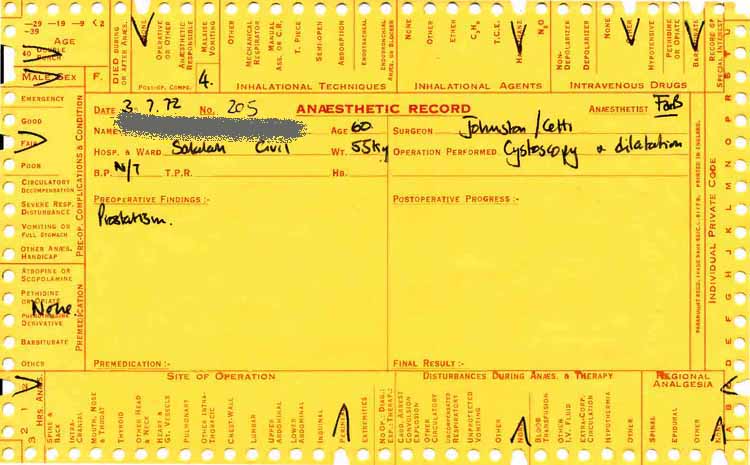 -29 -19 -9 <2
-39
AGE
60 DOUBLE PUNCH
MALE SEX F.
DIED DURING OR AFTER ANÆS.
NONE
OPERATIVE OR OTHER
ANÆSTHETIC RESPONSIBLE
MALAISE VOMITING
OTHER
POSTOP. COMPS.
4.
MECHANICAL RESPIRATOR
MANUAL ASS. OR C.R.
T. PIECE
SEMI-OPEN
ABSORPTION
ENDOTRACHEAL
INHALATIONAL TECHNIQUES
NONE
OTHER
ETHER
C₃H₆
T.C.E.
N₂O
INHALATIONAL AGENTS
NON-DEPOLARIZER
DEPOLARIZER
NONE
OTHER
HYPOTENSIVE
PETHIDINE OR OPIATE
BARBITURATE
INTRAVENOUS DRUGS
RECORD OF SPECIAL INTEREST
DATE 3.7.72 NO. 205 ANÆSTHETIC RECORD ANÆSTHETIST
NAME AGE 60 SURGEON Johnston/Cetti
HOSP. & WARD Salalah Civil WT. 55kg OPERATION PERFORMED Cystoscopy & dilatation
B.P. N/T T.P.R. HB.
PREOPERATIVE FINDINGS :- POSTOPERATIVE PROGRESS :-
Prostatism.
PREMEDICATION :- FINAL RESULT :-
EMERGENCY
GOOD
FAIR
POOR
CIRCULATORY DECOMPENSATION
SEVERE RESP. DISTURBANCE
VOMITING OR FULL STOMACH
OTHER ANÆS. HANDICAP
PRE-OP. COMPLICATIONS & CONDITION
ATROPINE OR SCOPOLAMINE
PETHIDINE OR OPIATE
None.
PHENOTHIAZINE DERIVATIVE
BARBITURATE
OTHER
PREMEDICATION
INDIVIDUAL PRIVATE CODE
A B C D E F G H I J K L M N O P Q R S T U
PRINTED IN ENGLAND.
3 2 1 HRS. ANÆS.
SITE OF OPERATION
SPINE & BACK
INTRA-CRANIAL
MOUTH, NOSE & THROAT
THYROID
OTHER HEAD & NECK
HEART & GT. VESSELS
PULMONARY
OTHER INTRA-THORACIC
CHEST-WALL
LUMBAR
UPPER ABDOMINAL
LOWER ABDOMINAL
INGUINAL
PERINEAL
EXTREMITIES
DISTURBANCES DURING ANÆS. & THERAPY
NO OP. DIAG.: EXP. THERAP.:
CARD. ARREST CONVULSION EXPLOSION
OTHER CIRCULATORY
UNCOMPENSATED RESPIRATORY
UNPROTECTED VOMITING
OTHER
NONE
BLOOD TRANSFUSION
OTHER I.V. FLUID
EXTRA-CORP. CIRCULATION
HYPOTHERMIA
OTHER
REGIONAL ANALGESIA
SPINAL
EPIDURAL
OTHER